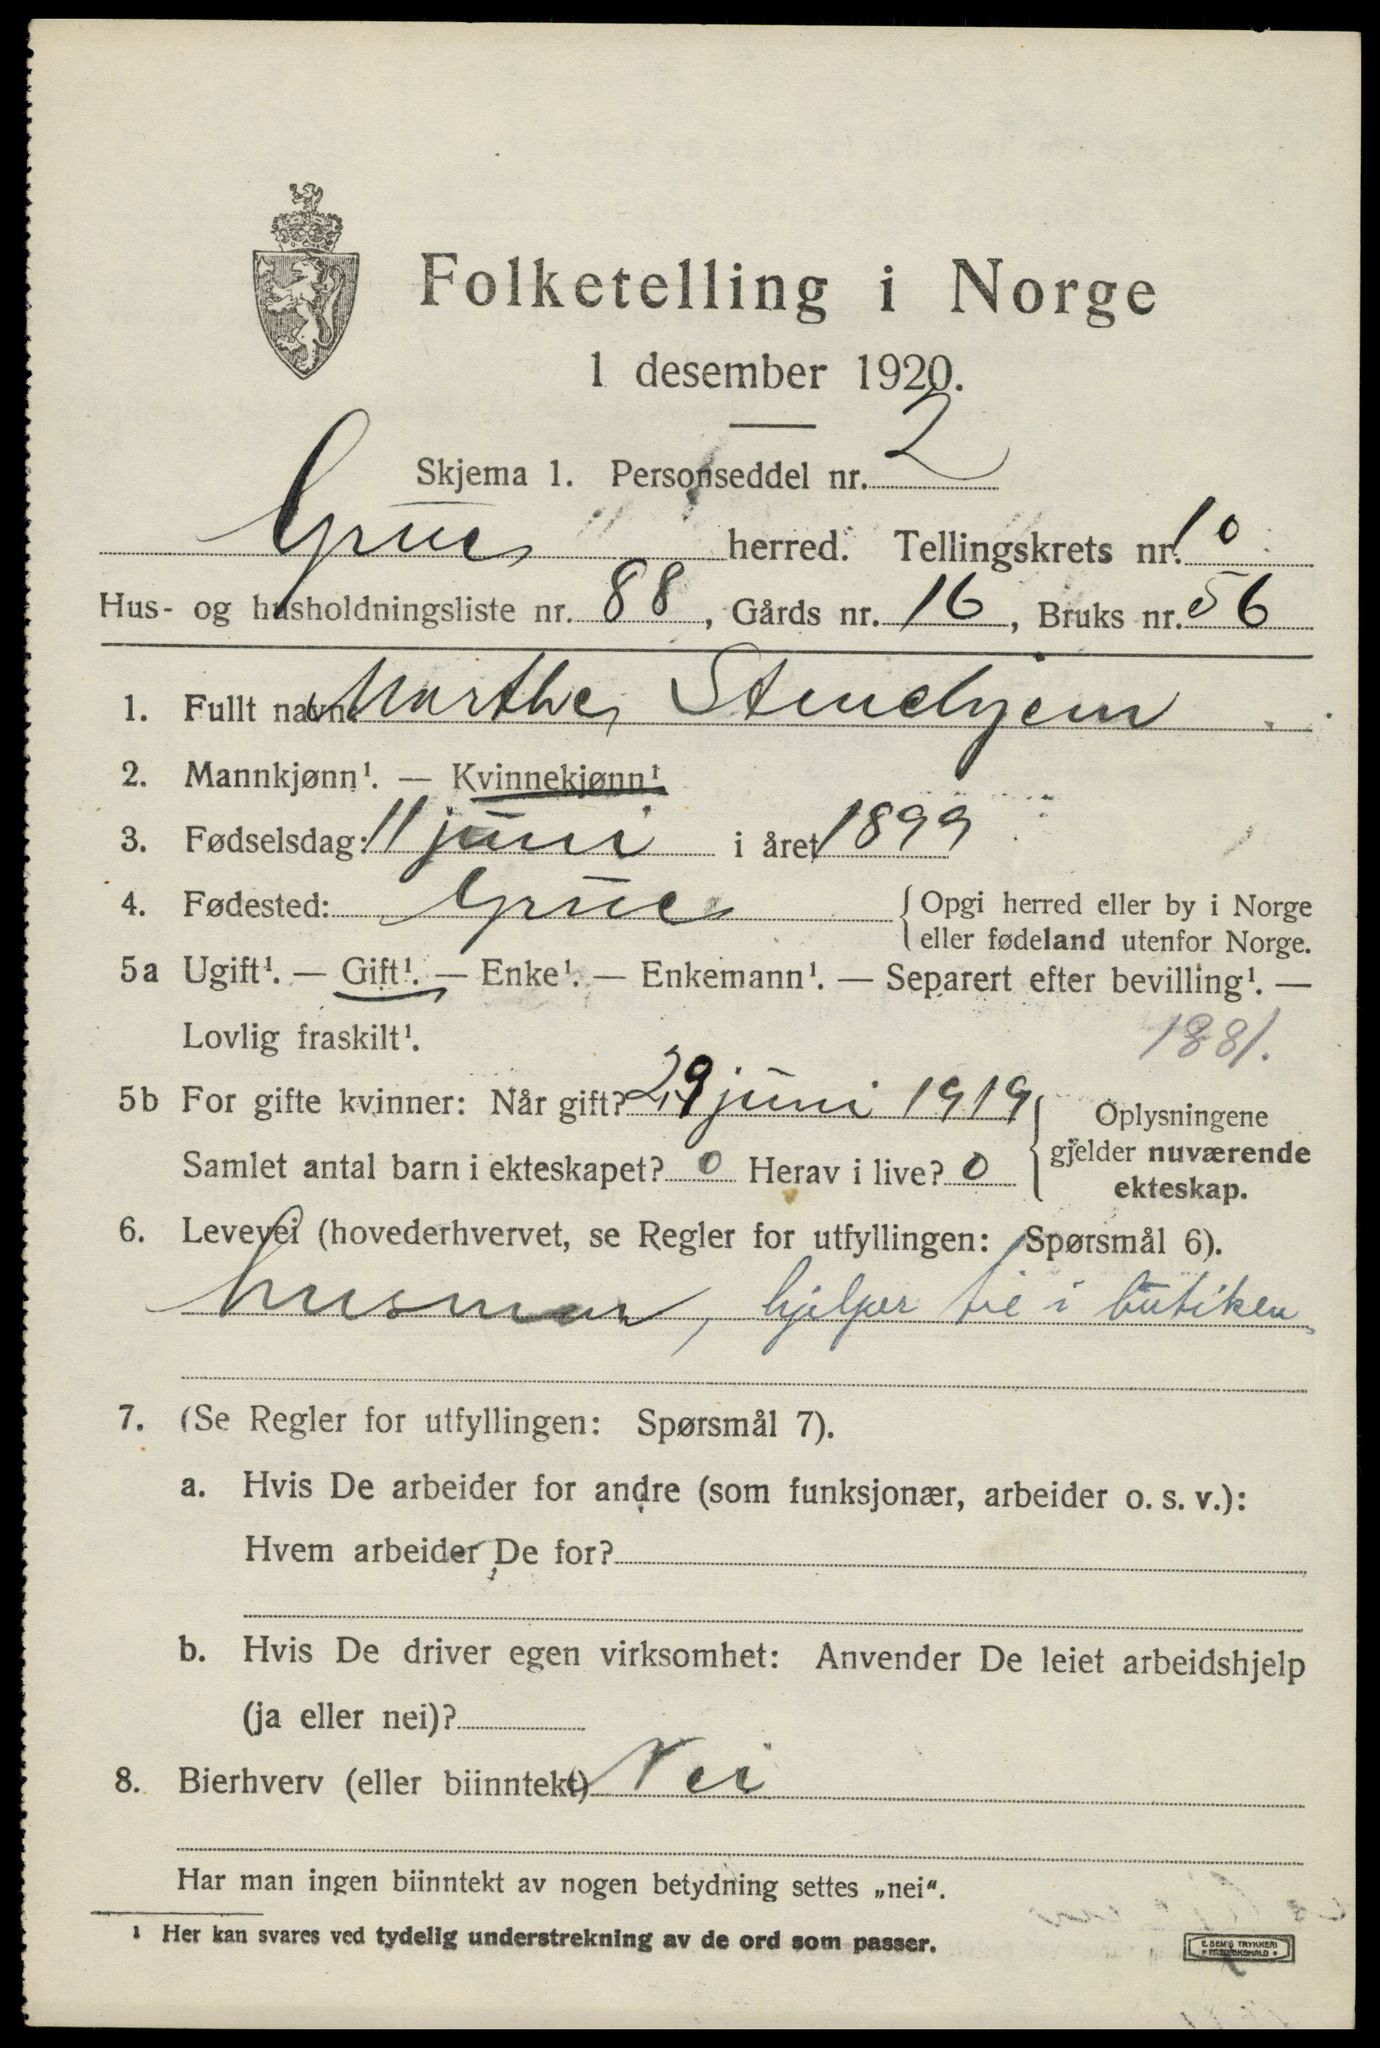 Folketelling i Norge
1 desember 1920.
Skjema 1. Personseddel nr. 2
Grue herred. Tellingskrets nr. 10
Hus- og husholdningsliste nr. 88, Gårds nr. 16, Bruks nr. 56
1. Fullt navn: Marthe Stenehjem
2. Mannkjønn¹. — Kvinnekjønn¹
3. Fødselsdag: 11 juni i året 1899
4. Fødested: Grue { Opgi herred eller by i Norge
eller fødeland utenfor Norge.
5a Ugift¹. — Gift¹. — Enke¹. — Enkemann¹. — Separert efter bevilling¹. —
Lovlig fraskilt¹. 1881.
5b For gifte kvinner: Når gift? 29 juni 1919 { Oplysningene
gjelder nuværende
ekteskap.
Samlet antal barn i ekteskapet? 0 Herav i live? 0
6. Levevei (hovederhvervet, se Regler for utfyllingen: Spørsmål 6).
husmor, hjelper til i butiken.
7. (Se Regler for utfyllingen: Spørsmål 7).
a. Hvis De arbeider for andre (som funksjonær, arbeider o. s. v.):
Hvem arbeider De for?
b. Hvis De driver egen virksomhet: Anvender De leiet arbeidshjelp
(ja eller nei)?
8. Bierhverv (eller biinntekt) Nei
Har man ingen biinntekt av nogen betydning settes „nei“.
¹ Her kan svares ved tydelig understrekning av de ord som passer.
E. SEM'S TRYKKERI
FREDRIKSHALD